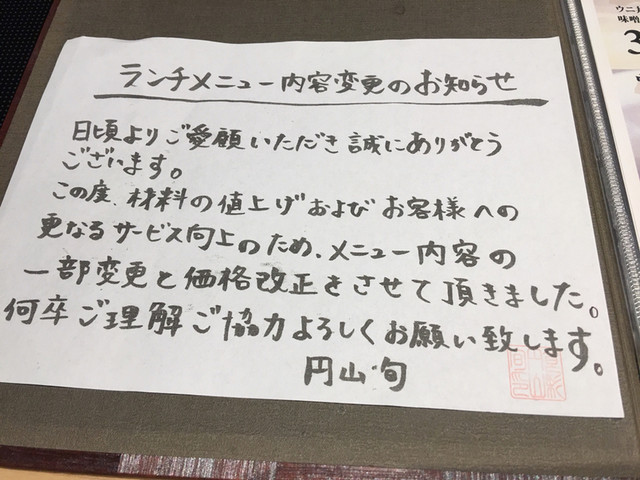 ランチメニュー内容変更のお知らせ
日頃よりご愛願いただき誠にありがとう
ございます。
この度、材料の値上げおよびお客様への
更なるサービス向上のため、メニュー内容の
一部変更と価格改正をさせて頂きました。
何卒ご理解ご協力よろしくお願い致します。
円山・旬
ウニ
味噌
3